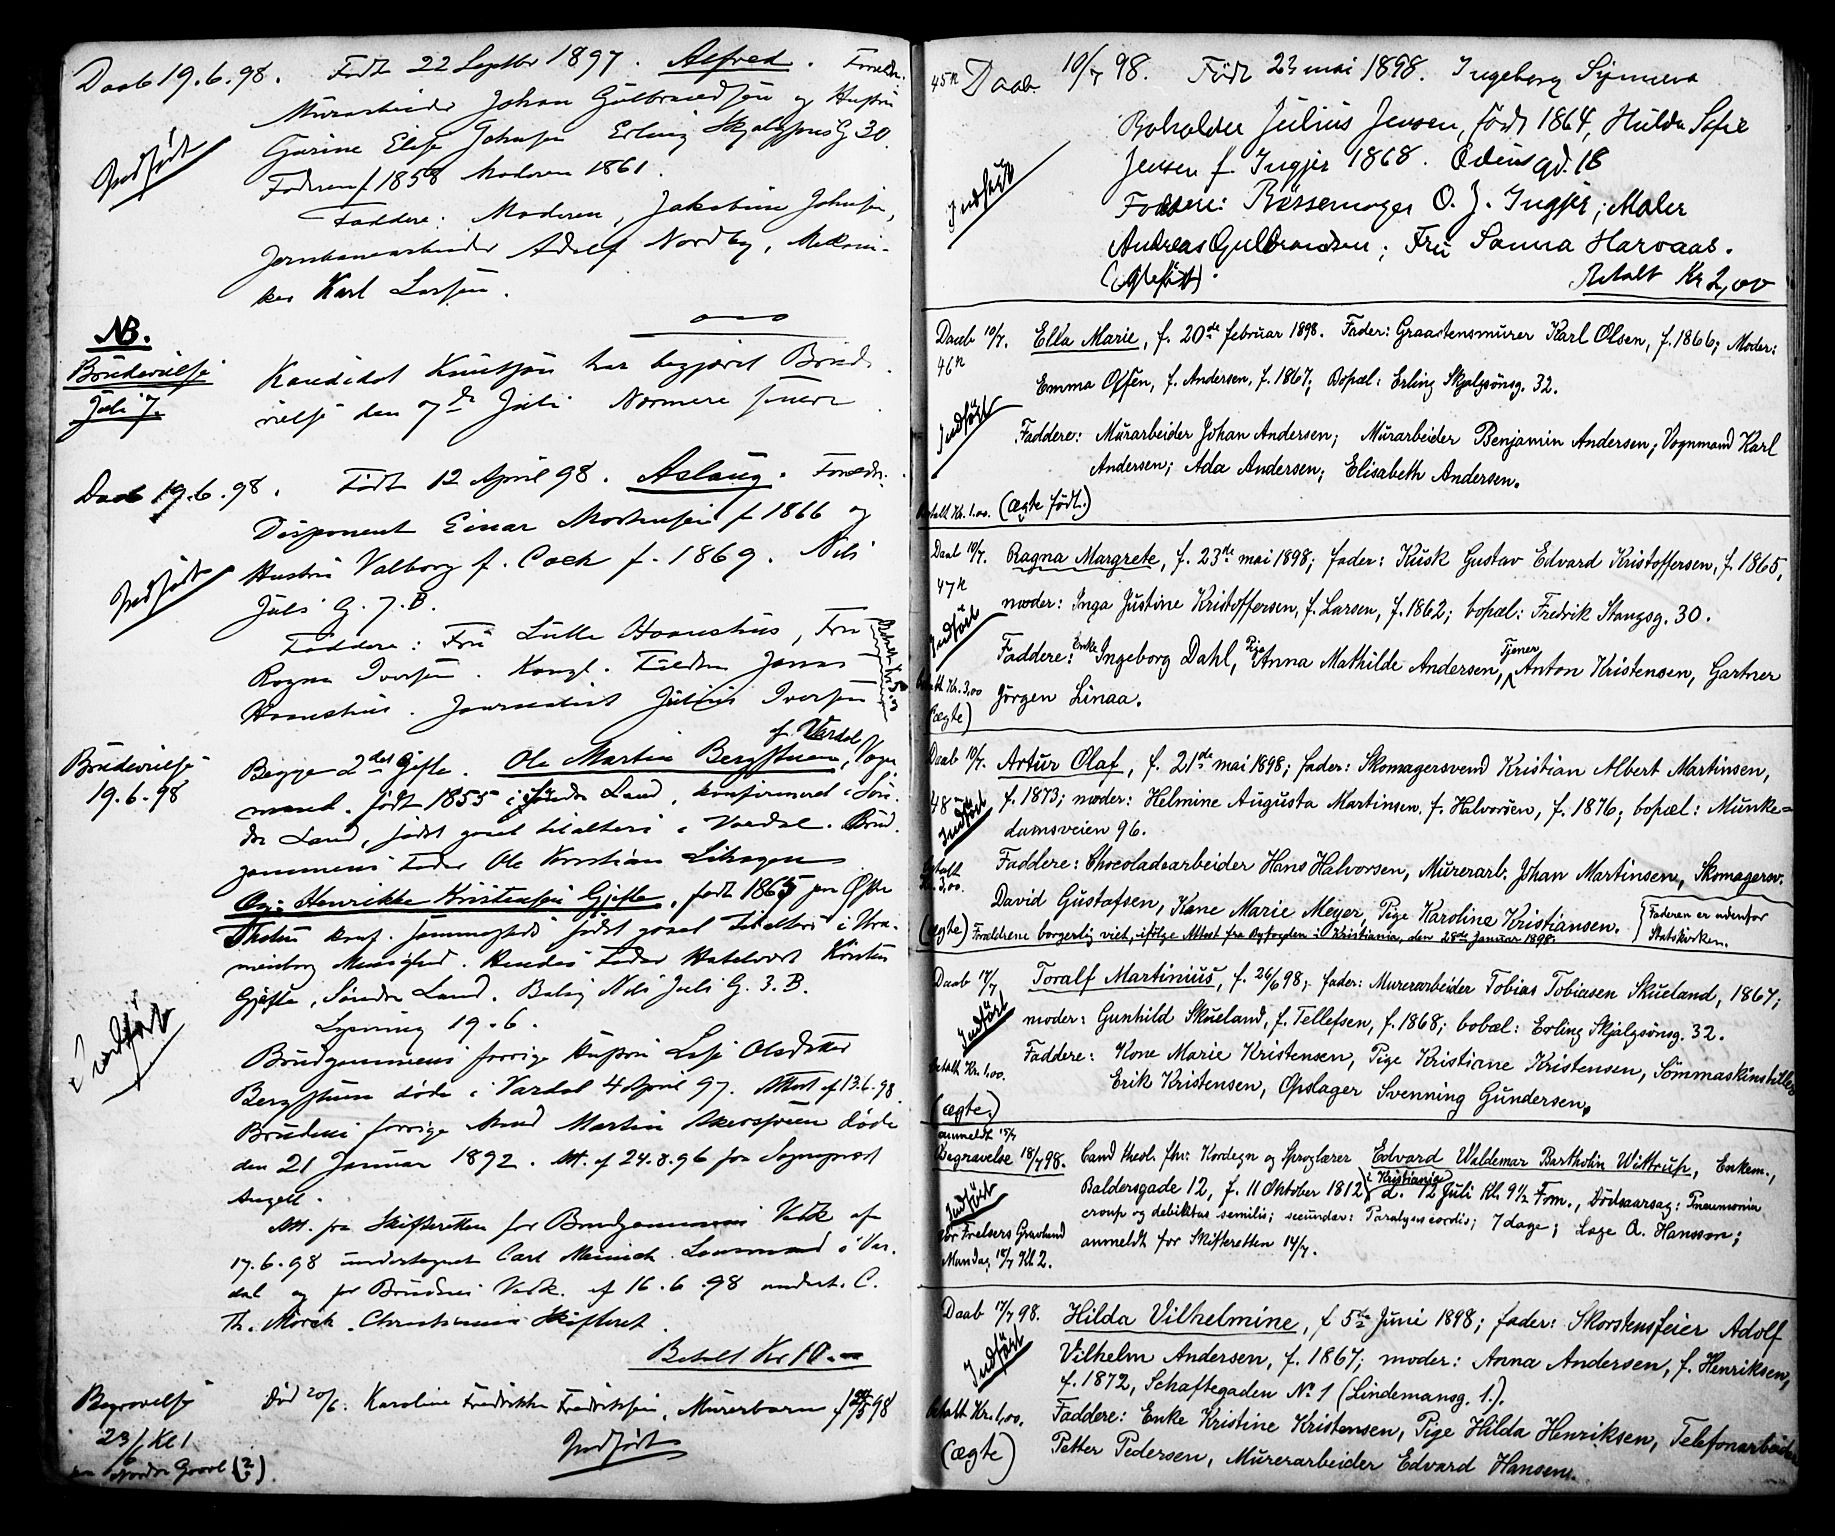 Daab 19.6.98. Födt 22 Septbr 1897. Alfred. Foreldr:
Murarbeider Johan Gulbrandsen og Hustru
Indført
Gurine Elise Johnsen Erling Skjalgsøns G 30.
Faderen f 1858 Moderen 1861.
Faddere: Moderen, Jakobine Johnsen,
Jernbanearbeider Adolf Nordby, Mekani-
ker Karl Larsen.
NB.
Brudevielse
Juli 7.
Kandidat Knutsen har begjæret Brude-
vielse den 7de Juli. Nærmere senere
Daab 19.6.98. Födt 12 April 98. Aslaug. Foreldr:
Disponent Einar Mortensen f 1866 og
Hustru Valborg f. Cock f. 1869. Nils
Indført
Juls G. 7.B.
Faddere: Fru Lulla Hanshus, Fru
Ragna Iversen. Kongl. Fuldm Jonas
Hanshus. Journalist Julius Iversen
Brudevielse
19.6.98
Begge 2det Gifte. Ole Martin Bergstuen f. Vardal, Vogn-
mand. född 1855 i Søndre Land, konfirmered i Søn-
dre Land, født gøet til alters i Vardal. Brud-
gommens Fader Ole Kristian
Og: Henrikke Kristensen Gjefle, født 1865 paa Østre
Thoten konf. sammesteds sidst gaaet til alters i Ura-
nienborg Menighed. Hendes Fader Kristen
Gjefle, Søndre Land. Bolig Nils Juls G. 3. B.
Lysning 19.6.
Indført
Brudgommens forrige Hustru Lise Olsdatter
Bergstuen døde i Vardal 4 April 97. Attest af 13.6.98
Brudens forrige Mand Martin døde
den 21 Januar 1892. Att. af 24.8.96 fra Sogneprest
Angell.
Att. fra Skifteretten for Brudgommens Vedk. af
17.6.98 undertegnet Carl Meinich Lensmand i Var-
dal og for Brudens Vedk. af 16.6.98 undert. C.
Th. Mørch. Christiania Skifteret.
Betalt Kr 10.—
Begravelse
23/6 Kl 1
Død 20/6. Karoline Fredrikke Fredriksen, Murerbarn f 98
Indført
45 K Daab 10/7 98. Født 23 mai 1898. Ingeborg Synneva
Boholder Julius Jensen, født 1864, Hulda Sofie
Jensen f. Ingjer 1868. Odins gd. 18
Indført
Faddere: Ræssemager O. J. Ingjer; Maler
Andreas Gulbrandsen; Fru Sanna Harvaas.
(ægtefødt). Betalt Kr 2,00
Daab 10/7. Ella Marie, f. 20de februar 1898. Fader: Graastensmurer Karl Olsen, f. 1866; Moder:
46 K
Emma Olsen, f. Andersen, f. 1867; Bopæl: Erling Skjalgsönsg. 32.
Indført
Faddere: Murarbeider Johan Andersen; Murarbeider Benjamin Andersen; Vognmand Karl
Andersen; Ada Andersen; Elisabeth Andersen.
Betalt Kr. 1.00. (ægte født.)
Daab 10/7. Ragna Margrete, f. 23de mai 1898; fader: Kusk Gustav Edvard Kristoffersen, f. 1865,
47 K
moder: Inga Justine Kristoffersen, f. Larsen, f. 1862; bopæl: Fredrik Stangsg. 30.
Indført
Faddere: Enke Ingeborg Dahl, Pige Anna Mathilde Andersen, Tjener Anton Kristensen, Gartner
Betalt Kr. 3,00 Jörgen Linaa.
(ægte)
Daab 10/7. Artur Olaf, f. 21de mai 1898; fader: Skomagersvend Kristian Albert Martinsen,
48
Indført
f. 1873; moder: Helmine Augusta Martinsen, f. Halvorsen, f. 1876; bopæl: Munke-
damsveien 96.
Betalt Kr. 3,00.
Faddere: Chocoladearbeider Hans Halvorsen, Murerarb. Johan Martinsen, Skomagersv.
David Gustafsen, Kone Marie Meyer, Pige Karoline Kristiansen. Faderen er udenfor Statskirken.
(ægte) Forældrene borgerlig viet, ifölge Attest fra Byfogden i Kristiania, den 28de Januar 1898.
Daab 17/7 Toralf Martinius, f. 26/6 98; fader: Murerarbeider Tobias Tobiasen Skueland, 1867;
Indført
moder: Gunhild Skueland, f. Tellefsen, f. 1868; bobæl: Erling Skjalgsönsg. 32.
Betalt Kr. 1.00.
Faddere: Kone Marie Kristensen, Pige Kristiane Kristensen, Sömmaskinstiller
Erik Kristensen, Opslager Svenning Gundersen.
(ægte.)
anmeldt 15/7
Begravelse 18/7 98. Cand. theol. fhv. Kordegn og Sproglærer Edvard Waldemar Bartholin Wittrup, Enkem.,
Baldersgade 12, f. 11 Oktober 1812 i Kristiania d. 12 Juli Kl. 9 1/2 Fom., Dödsaarsag: Pneumonia
Indført
croup og debilitas senilis; secundær: Paralysis cordis; 7 dage; Læge A. Hansson;
Vor Frelsers Gravlund anmeldt for Skifteretten 14/7.
Mandag 18/7 Kl 2.
Daab 17/7 98. Hilda Vilhelmine, f. 5te Juni 1898; fader: Skorstensfeier Adolf
Indført
Vilhelm Andersen, f. 1867; moder: Anna Andersen, f. Henriksen,
f. 1872, Schaftegaden No 1 (Lindemansg. 1.).
Betalt Kr. 1,00. Faddere: Enke Kristine Kristensen, Pige Hilda Henriksen, Telefonarbeider
(ægte) Petter Pedersen, Murerarbeider Edvard Hansen.